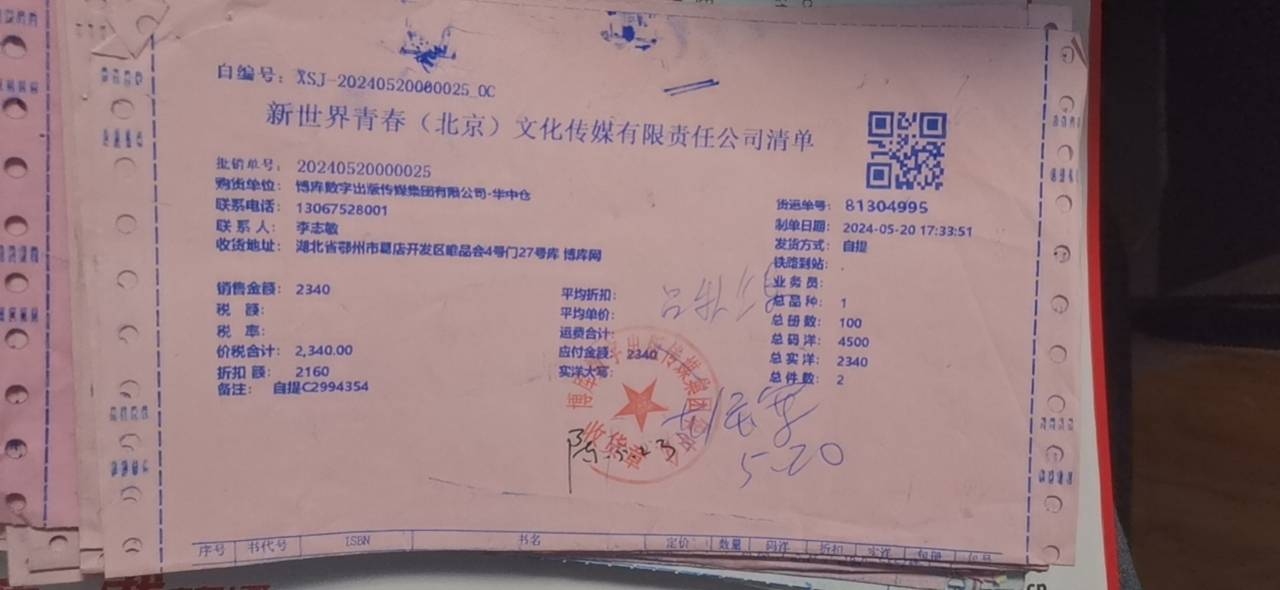 自编号：XSJ-20240520000025_OC
新世界青春（北京）文化传媒有限责任公司清单
批销单号：20240520000025
购货单位：博库数字出版传媒集团有限公司-华中仓
联系电话：13067528001
联系人：李志敏
收货地址：湖北省鄂州市葛店开发区唯品会4号门27号库 博库网
货运单号：81304995
制单日期：2024-05-20 17:33:51
发货方式：自提
铁路到站：.
业务员：
总品种：1
总册数：100
总码洋：4500
总实洋：2340
总件数：2
销售金额：2340
税额：
税率：
价税合计：2,340.00
折扣额：2160
备注：自提C2994354
平均折扣：
平均单价：
运费合计：
应付金额：2340
实洋大写：
收货章
陈 5.23
5-20
序号 书代号 ISBN 书名 定价 数量 码洋 折扣 实洋 包册 包号